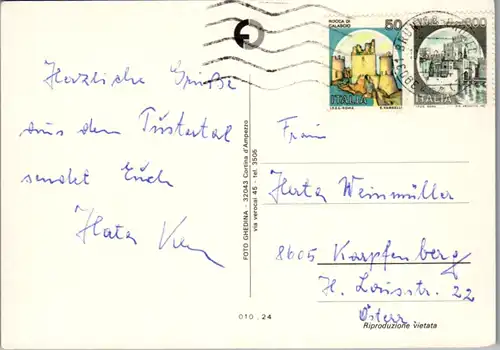 Herzliche Grüße
aus dem Pustertal
sendet Euch
ROCCA DI
CALASCIO
50
ITALIA
I.P.Z.S. ROMA
E. VANGELLI
ITALIA
FOTO GHEDINA - 32043 Cortina d'Ampezzo
via verocai 45 - tel. 3505
Frau
Herta Weinmüller
8605 Karpfenberg
Österr.
Riproduzione vietata
010 . 24